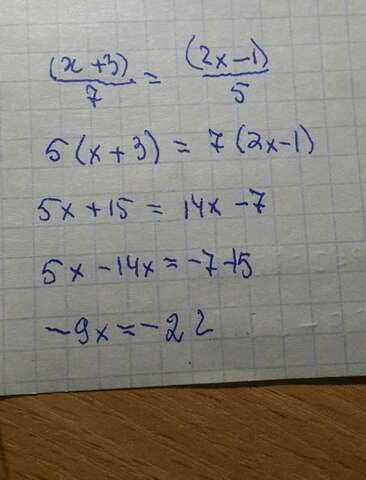 (x+3)/7 = (2x-1)/5
5(x+3) = 7(2x-1)
5x+15 = 14x-7
5x-14x=-7-15
-9x=-22